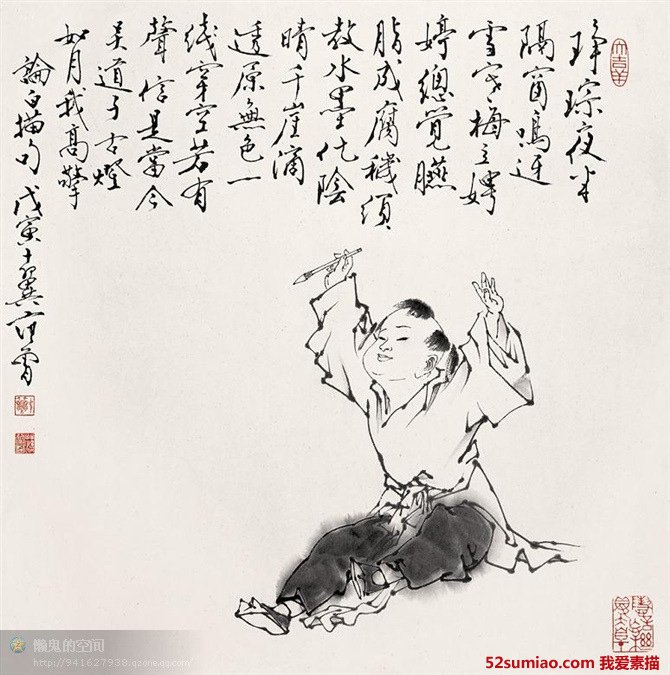 琤琮夜半
隔窗鳴迓
雪寒梅立娉
婷總覺臙
脂成腐穢須
教水墨化陰
晴千崖滴
透原無色一
线穿空若有
聲信是當今
吴道子古燈
如月我高擎
論白描句 戊寅十翼范曾
大吉羊
懒鬼的空间
http://941627938.qzone.qq.com
52sumiao.com 我爱素描